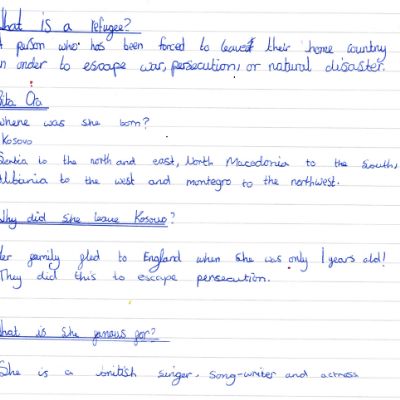 What is a refugee?
A person who has been forced to leave their home country
in order to escape war, persecution, or natural disaster.
Rita Ora
Where was she born?
Kosovo
Serbia to the north and east, North Macedonia to the south,
Albania to the west and montegro to the northwest.
Why did she leave Kosovo?
Her family fled to England when she was only 1 years old!
They did this to escape persecution.
What is she famous for?
She is a british singer, song-writer and actress